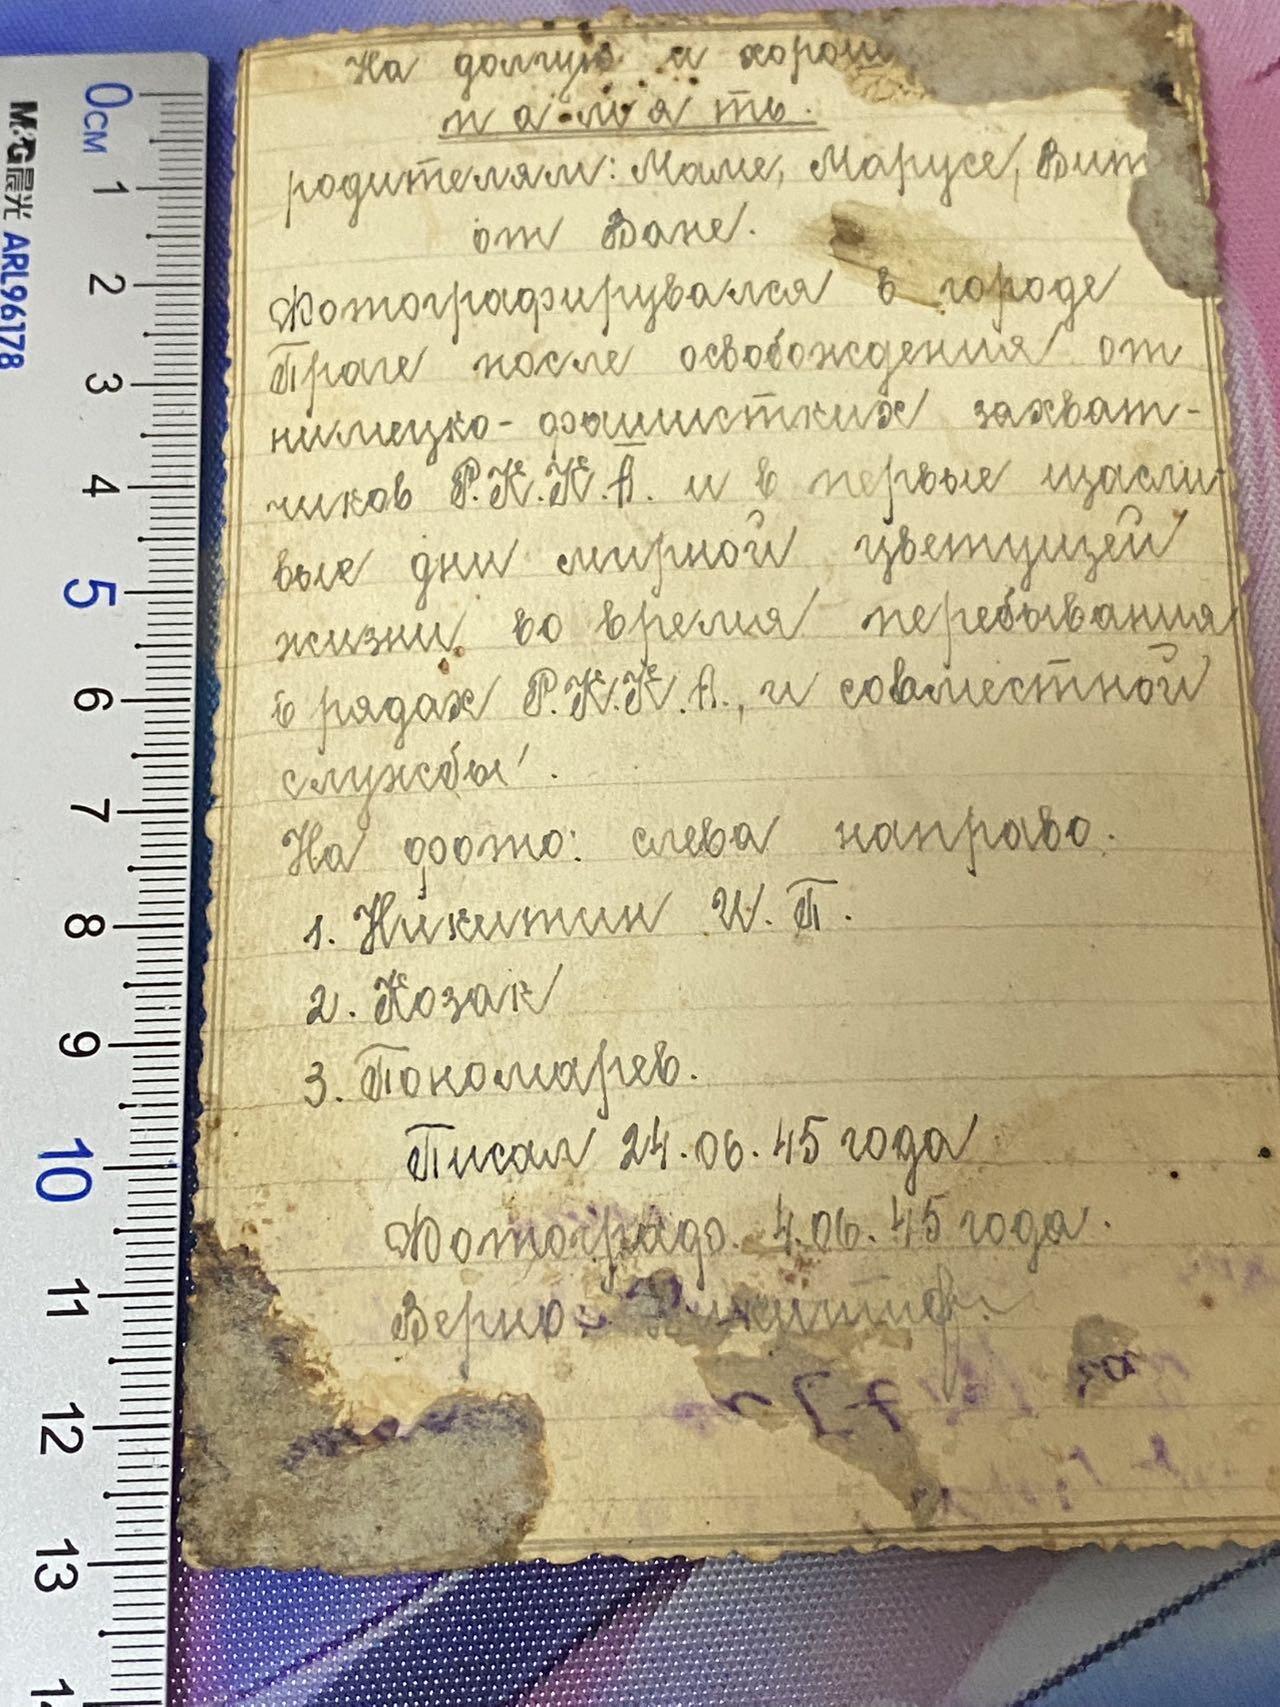 На долгую и хорош
память.
родителям: Маме, Марусе, Вит
от Ване.
Фотографирувался в городе
Праге после освобождения от
нимецко-фашистких захват-
чиков Р.К.К.А. и в первые щасли
вые дни мирной цветущей
жизни, во время перебывания
в рядах Р.К.К.А., и совместной
службы.
На фото: слева направо.
1. Никитин И. П.
2. Козак
3. Пономарев.
Писал 24.06.45 года
Фотограф. 4.06.45 года.
Верно:
0 CM
1
2
3
4
5
6
7
8
9
10
11
12
13
M&G 晨光 ARL96178